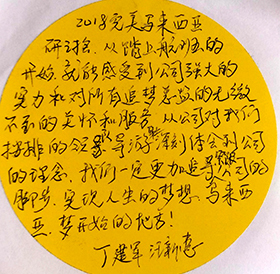 2018完美马来西亚
研讨会，从踏上航班的
开始，就能感受到公司强大的
实力和对所有追梦者般的无微
不至的关怀和服务，从公司对我们
安排的领队导游深刻体会到公司
的理念，我们一定更加追寻公司的
脚步，实现人生的梦想，马来西
亚，梦开始的地方！
丁建军 汪新惠